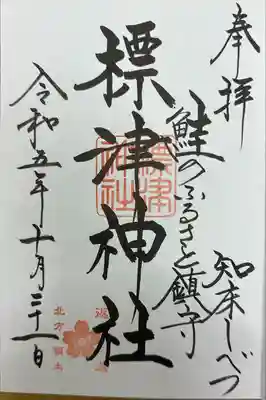 奉拝
知床しべつ
鮭のふるさと鎮守
標津神社
標津神社
令和五年十月二十一日